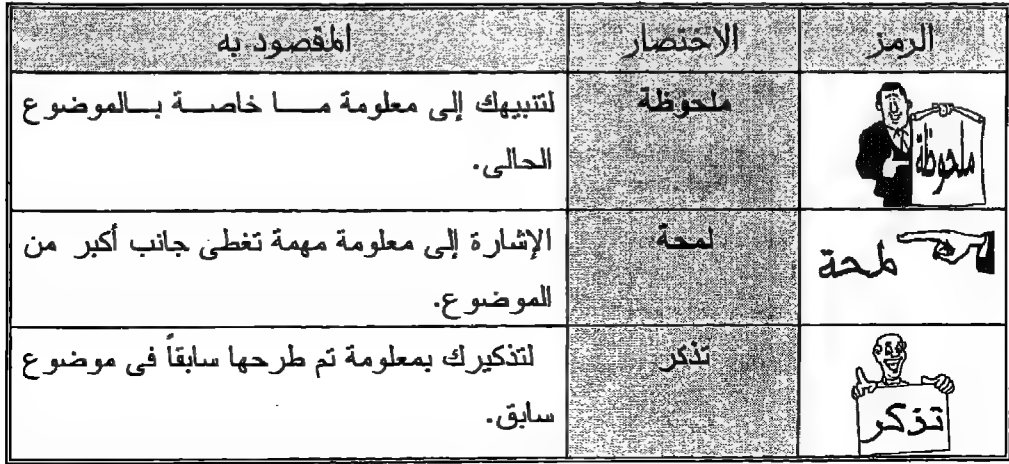 الرمز الاختصار المقصود به
ملحوظة ملحوظة لتنبيهك إلى معلومة مــا خاصــة بــالموضوع
الحالى.
لمحة لمحة الإشارة إلى معلومة مهمة تغطى جانب أكبر من
الموضوع.
تذكر تذكر لتذكيرك بمعلومة تم طرحها سابقاً فى موضوع
سابق.